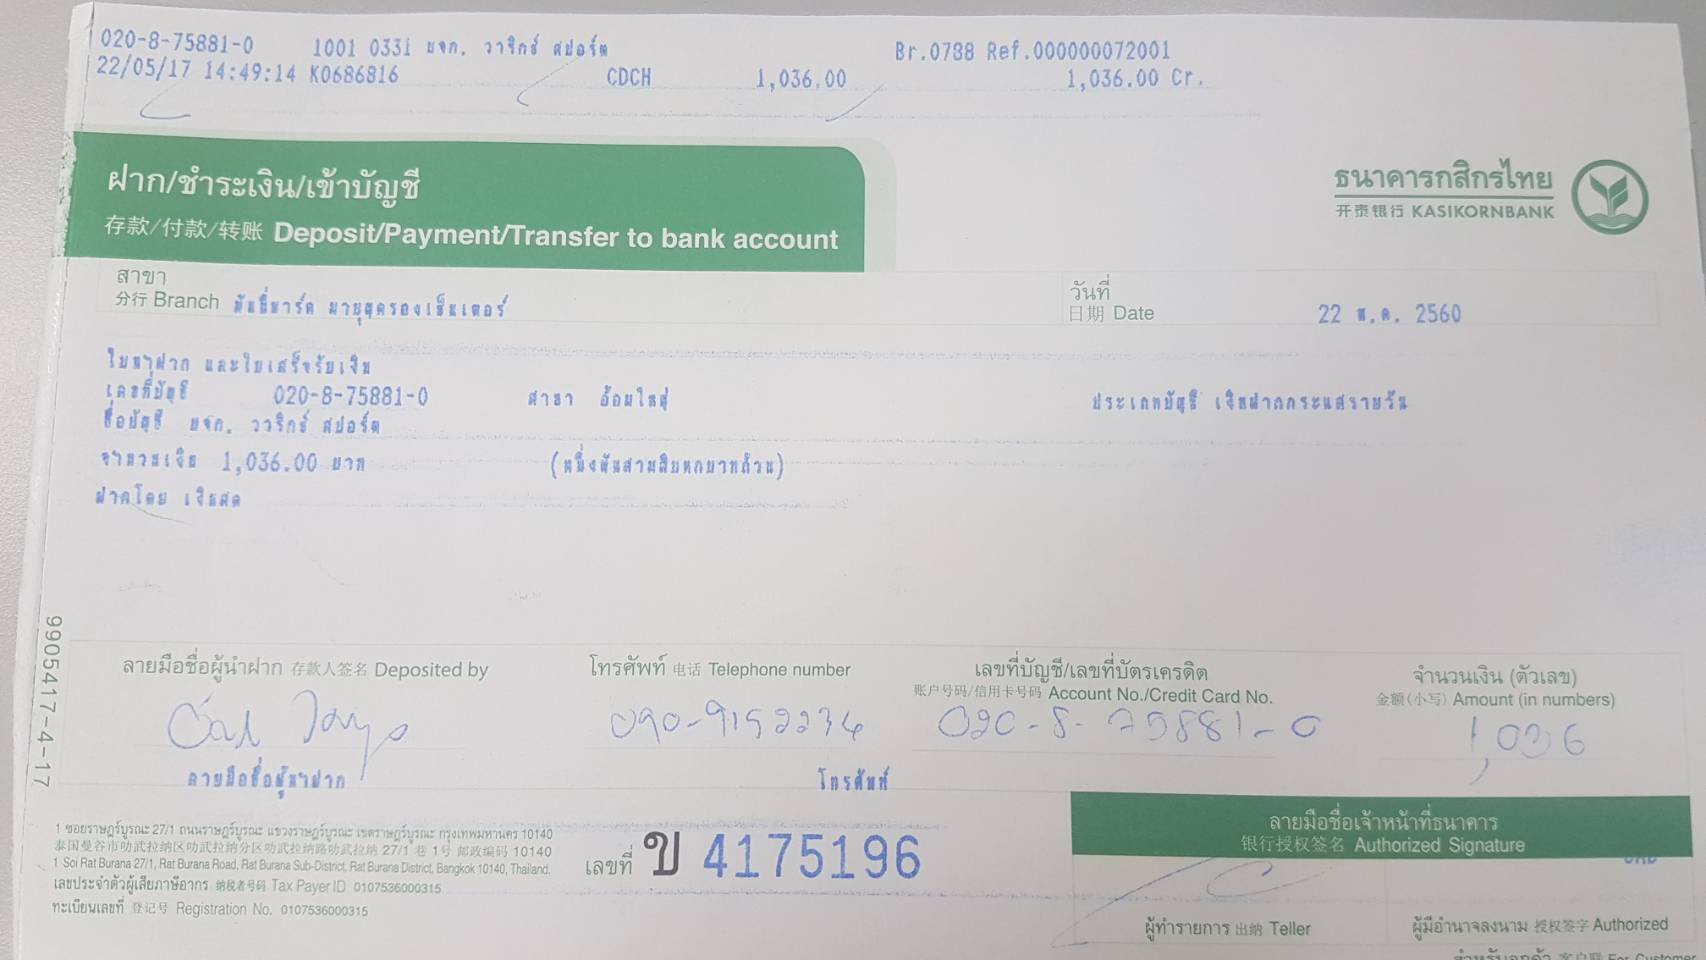 020-8-75881-0 1001 0331 บจก. วาริกซ์ สปอร์ต Br.0788 Ref.000000072001
22/05/17 14:49:14 K0686816 CDCH 1,036.00 1,036.00 Cr.
ฝาก/ชำระเงิน/เข้าบัญชี
存款/付款/转账 Deposit/Payment/Transfer to bank account
ธนาคารกสิกรไทย
开泰银行 KASIKORNBANK
สาขา
分行 Branch
วันที่
日期 Date 22 พ.ค. 2560
ใบนำฝาก และใบเสร็จรับเงิน
เลขที่บัญชี 020-8-75881-0 สาขา อ้อมใหญ่ ประเภทบัญชี เงินฝากกระแสรายวัน
ชื่อบัญชี บจก. วาริกซ์ สปอร์ต
จำนวนเงิน 1,036.00 บาท (หนึ่งพันสามสิบหกบาทถ้วน)
ฝากโดย เงินสด
9905417-4-17
ลายมือชื่อผู้นำฝาก 存款人签名 Deposited by
โทรศัพท์ 电话 Telephone number
เลขที่บัญชี/เลขที่บัตรเครดิต
账户号码/信用卡号码 Account No./Credit Card No.
จำนวนเงิน (ตัวเลข)
金额(小写) Amount (in numbers)
090-9152234 020-8-75881-0 1,036
ลายมือชื่อผู้นำฝาก โทรศัพท์
1 ซอยราษฎร์บูรณะ 27/1 ถนนราษฎร์บูรณะ แขวงราษฎร์บูรณะ เขตราษฎร์บูรณะ กรุงเทพมหานคร 10140
泰国曼谷市叻武拉纳区叻武拉纳分区叻武拉纳路叻武拉纳 27/1 巷 1号 邮政编码 10140
1 Soi Rat Burana 27/1, Rat Burana Road, Rat Burana Sub-District, Rat Burana District, Bangkok 10140, Thailand.
เลขประจำตัวผู้เสียภาษีอากร 纳税者号码 Tax Payer ID 0107536000315
ทะเบียนเลขที่ 登记号 Registration No. 0107536000315
เลขที่ ข 4175196
ลายมือชื่อเจ้าหน้าที่ธนาคาร
银行授权签名 Authorized Signature
ผู้ทำรายการ 出纳 Teller
ผู้มีอำนาจลงนาม 授权签字 Authorized
สำหรับลูกค้า 客户联 For Customer